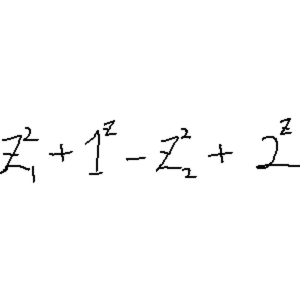 z_1^2 + 1^z - z_2^2 + 2^z